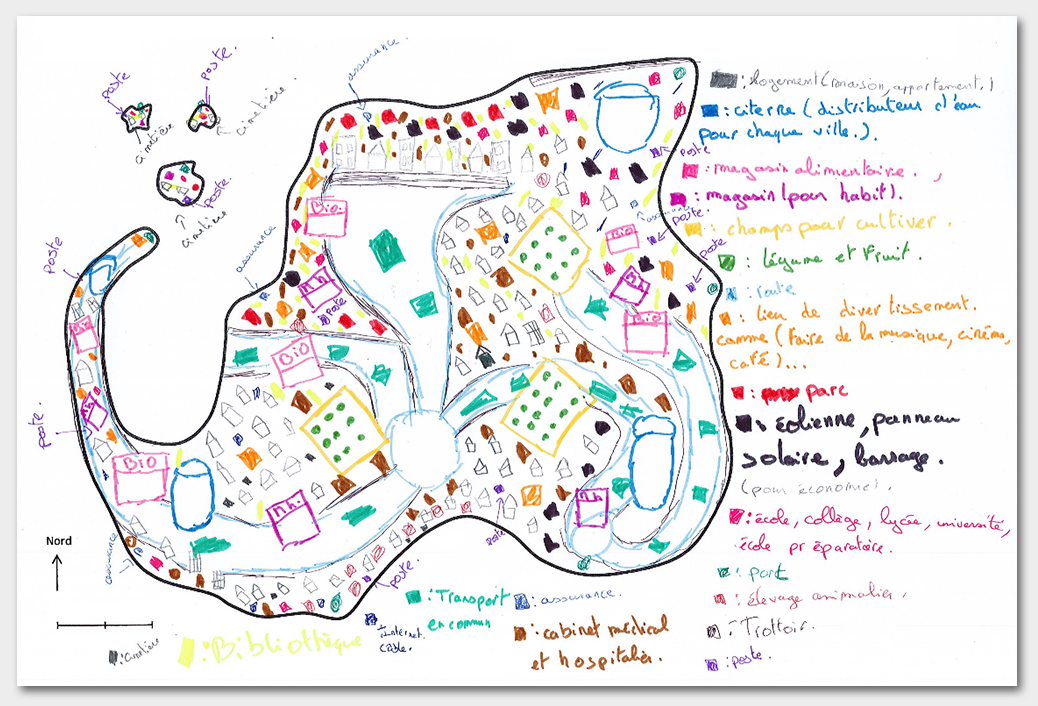 assurance.
poste
poste.
cimetière
cimetière.
poste.
cimetière
poste
assurance
poste.
assurance
Bio.
Bio
Bio
BIO
Bio
Bio
h.h
n.h.
n.h.
poste
poste
poste.
poste
assurance
poste.
Nord
: logement (maison, appartement,)
: citerne (distributeur d'eau
pour chaque ville.).
: magasin alimentaire. ,
: magasin (pour habit).
: champs pour cultiver.
: légume et fruit.
: route
: lieu de divertissement.
comme (faire de la musique, cinéma,
café)...
: parc
: éolienne, panneau
solaire, barrage.
(pour économie).
: école, collège, lycée, université,
école préparatoire.
: port
: élevage animalier.
: Trottoir.
: poste.
: Transport
en commun
: assurance.
: cabinet médical
et hospitalier.
: Internet.
câble.
: Bibliothèque
: cimetière